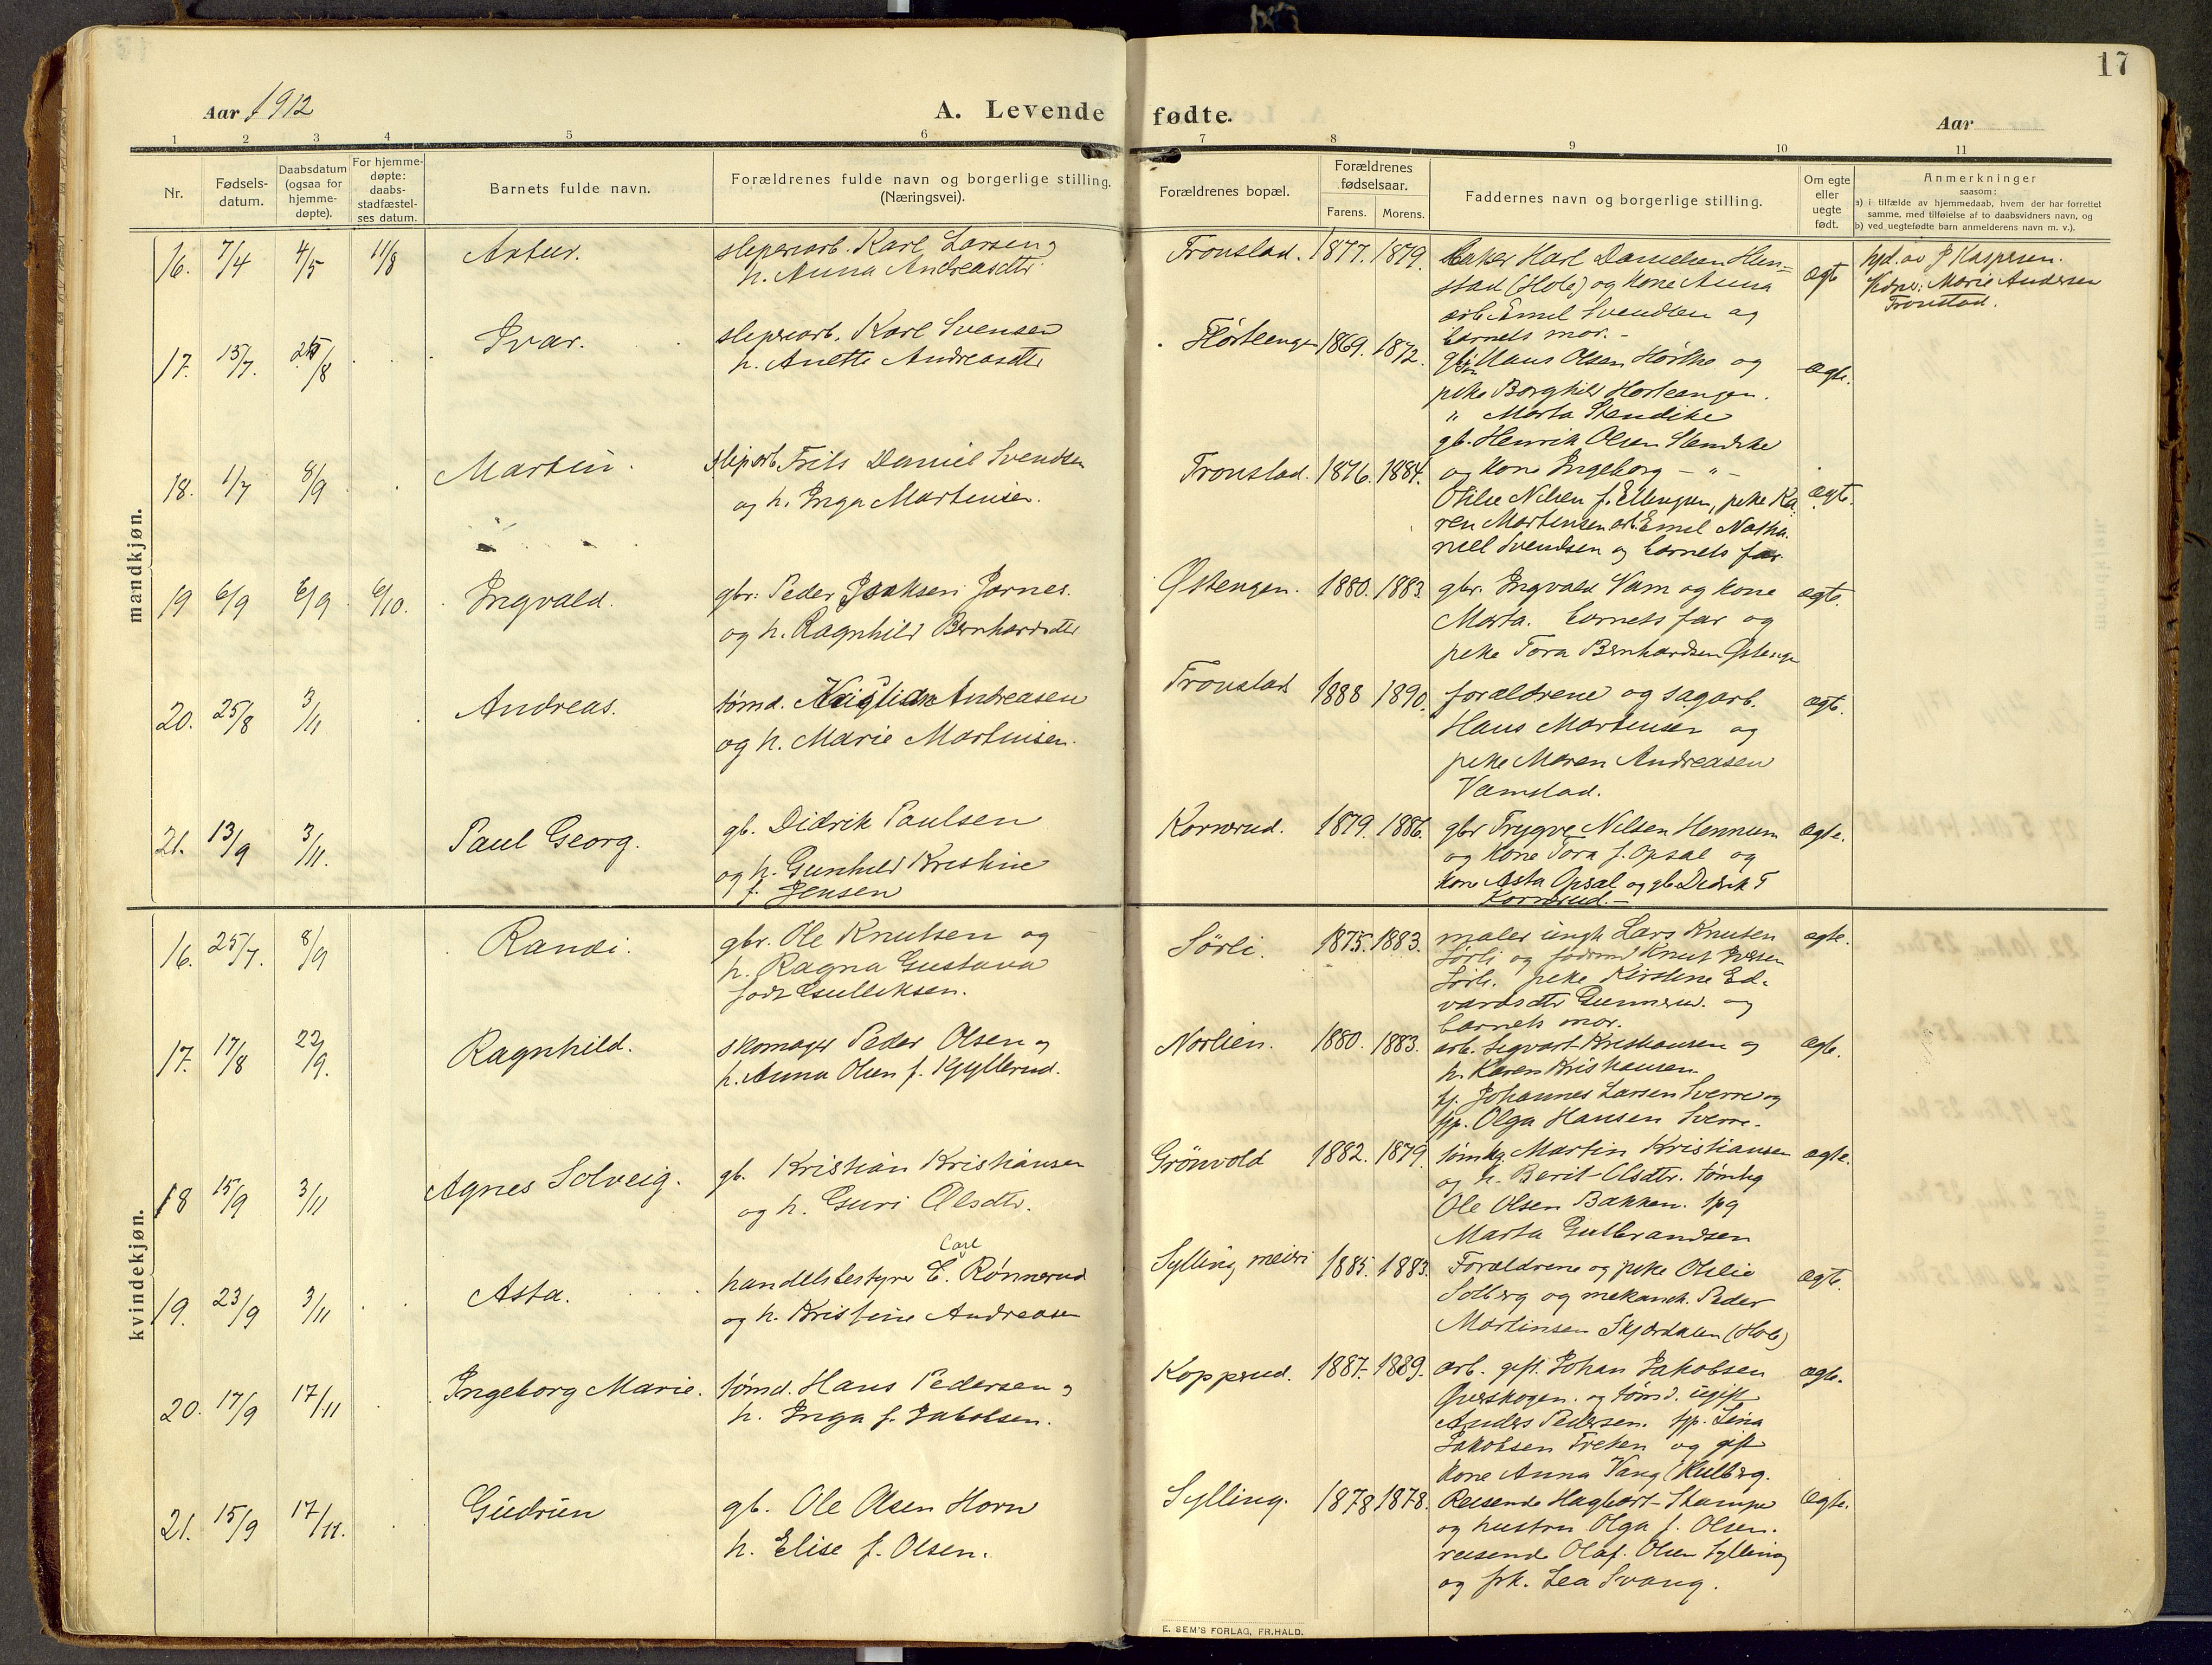 17
Aar 1912
A. Levende fødte.
Aar
1 2 3 4 5 6 7 8 9 10 11
Nr.
Fødsels-
datum.
Daabsdatum
(ogsaa for
hjemme-
døpte).
For hjemme-
døpte:
daabs-
stadfæstel-
ses datum.
Barnets fulde navn.
Forældrenes fulde navn og borgerlige stilling.
(Næringsvei).
Forældrenes bopæl.
Forældrenes
fødselsaar.
Farens. Morens.
Faddernes navn og borgerlige stilling.
Om egte
eller
uegte
født.
Anmerkninger
saasom:
a) i tilfælde av hjemmedaab, hvem der har forrettet
samme, med tilføielse af to daabsvidners navn, og
b) ved uegtefødte barn anmelderens navn m. v.).
mandkjøn.
16. 7/4 4/5 11/8 Artur.
sliperiarb. Karl Larsen og
h. Anna Andreasdtr.
Tronstad. 1877. 1879.
Baker Karl Danielsen Hun-
stad (Hole) og kone Anna
arb. Emil Svendsen og
barnets mor.
ægte
hjd. av J Kaspersen.
Kone: Marie Andersen
Tronstad.
17. 13/7. 25/8 Ivar.
sliperiarb. Karl Svensen
h. Anette Andreasdtr
Hørteengen 1869. 1872.
Hans Olsen Hørthe og
pike Borghild Hørteengen.
" Marta Stendike
gb. Henrik Olsen Stendike
og kone Ingeborg - " -
ægte.
18. 1/7 8/9 Martin.
sliparb. Frits Daniel Svendsen
og h. Inga Martinsen.
Tronstad. 1876. 1884.
Otilie Nilsen f. Ellingsen, pike Ka-
ren Martinsen arb. Emil Natha-
niel Svendsen og barnets far
ægte.
19 6/9 6/9 6/10. Ingvald.
gbr. Peder Isaksen Jornes.
og h. Ragnhild Bernhardsdtr
Østengen. 1880. 1883.
gbr. Ingvald Vam og kone
Marta. barnets far og
pike Tora Bernhardsen Østenge
ægte.
20. 25/8 3/11 Andreas.
tømd. Kristian Andreasen
og h. Marie Martinsen.
Tronstad 1888 1890.
forældrene og sagarb.
Hans Martinsen og
pike Maren Andreasen
Vamstad.
ægte.
21. 13/9 3/11. Paul Georg.
gb. Didrik Paulsen
og h. Gunhild Kristine
f. Jensen
Kornrud. 1879. 1886.
gbr Trygve Nilsen Hennum
og kone Tora f. Opsal og
kone Asta Opsal og gb. Didrik
Kornrud.
ægte.
kvindekjøn.
16. 25/7. 8/9 Randi.
gbr. Ole Knutsen og
h. Ragna Gustava
født Gulliksen.
Sørli. 1875. 1883.
maler ungk Lars Knutsen
Sørli og Knut Iversen
Sørli. pike Kirstine Ed-
vardsdtr Gunnerud. og
barnets mor.
ægte.
17. 17/8 22/9. Ragnhild.
skomager Peder Olsen og
h. Anna Olsen f. Kyllerud.
Norlien. 1880. 1883.
arb. Sigvart Kristiansen og
h. Karen Kristiansen.
tj. Johannes Larsen Sverre og
tjp. Olga Hansen Sverre.
ægte.
18 15/9 3/11 Agnes Solveig.
gb. Kristian Kristiansen
og h. Guri Olsdtr.
Grönvold 1882. 1879.
tømhg. Martin Kristiansen
og h. Berit Olsdtr. tømhg
Ole Olsen Bakken.
Marta Gulbrandsen
ægte.
19. 23/9 3/11 Asta.
Carl
handelsbestyrer C. Rønnerud
og h. Kristine Andreasen
Sylling meieri 1885. 1883.
Forældrene og pike Otilie
Solberg og mekanik. Peder
Martinsen Skjærdalen (Hole)
ægte.
20. 17/9 17/11 Ingeborg Marie.
tømd. Hans Pedersen og
h. Inga f. Jakobsen.
Kopperud. 1887. 1889.
arb. gift. Johan Jakobsen
Øverskogen. og tømd. ugift
Anders Pedersen. tjp. Lina
Jakobsen Treten og gift
kone Anna Vang Kulberg.
ægte.
21. 15/9 17/11. Gudrun
gb. Ole Olsen Horn
h. Elise f. Olsen.
Sylling. 1878 1878.
Reisende Hagbart Stampe
og hustru Olga f. Olsen.
reisende Olaf Olsen Sylling
og frk. Lea Svang.
ægte.
E. SEM'S FORLAG, FR.HALD.